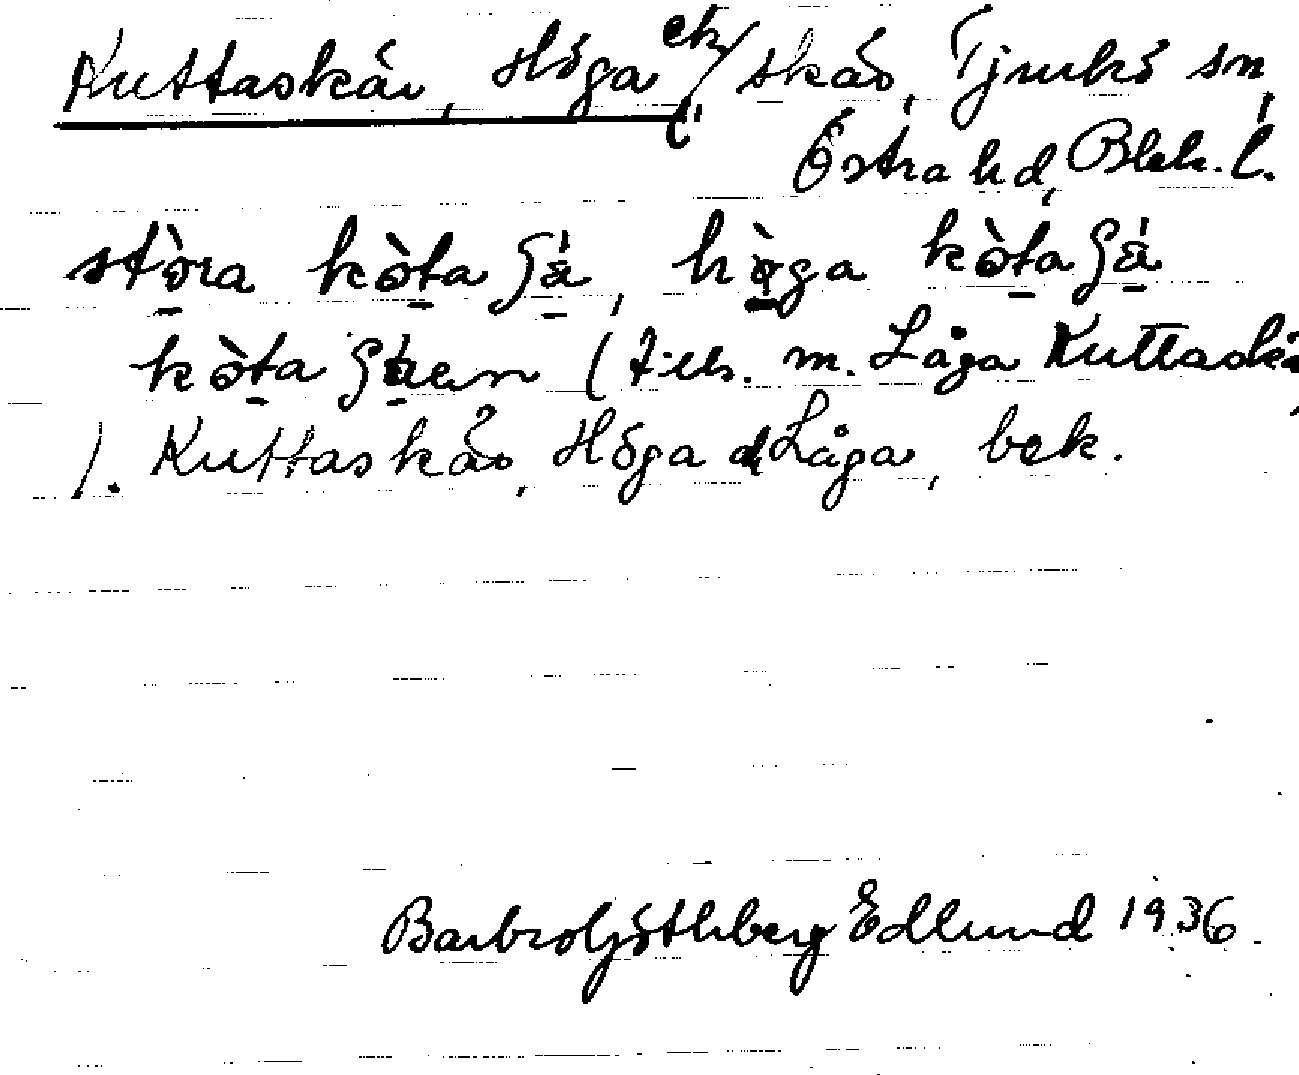 Kuttaskär, Höga ek/ skär, Tjurkö sn,
Östra hd, Blek. l.
stòra kòta ʃä́, hö̀ga kòta ʃä́
kòta (tills. m. Låga Kuttaskä
1. Kuttaskär, Höga o Låga, bek.
Barbro Göthberg Edlund 1936.